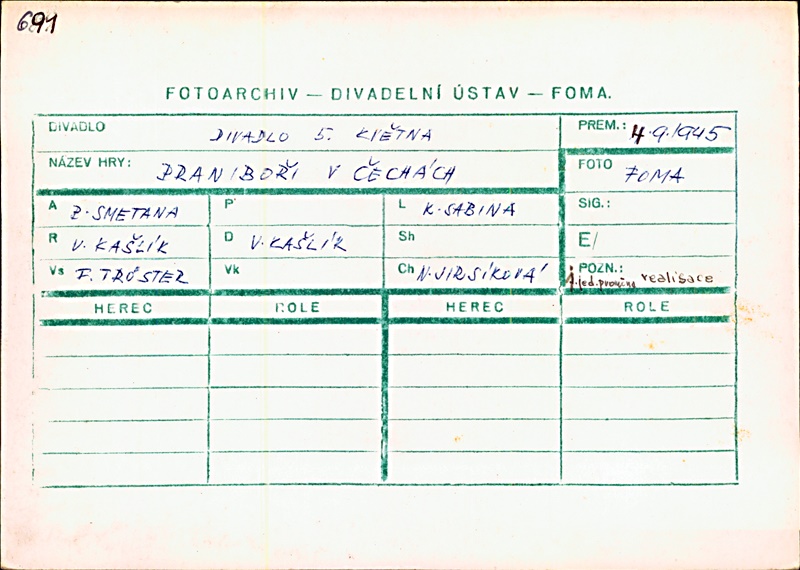 691
FOTOARCHIV — DIVADELNÍ ÚSTAV — FOMA.
DIVADLO DIVADLO 5. KVĚTNA PREM.: 4.9.1945
NÁZEV HRY: BRANIBOŘI V ČECHÁCH FOTO FOMA
A B. SMETANA P L K. SABINA SIG.:
R V. KAŠLÍK D V. KAŠLÍK Sh E/
Vs F. TRÖSTER Vk Ch N. JIRSÍKOVÁ POZN.:
1. jed. realisace
HEREC ROLE HEREC ROLE